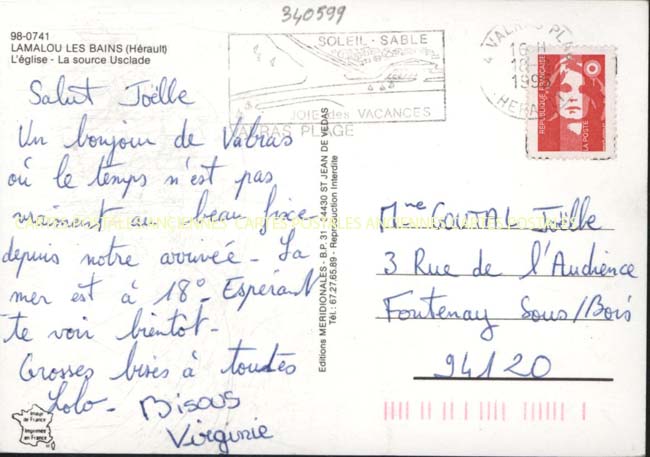 340599
98-0741
LAMALOU LES BAINS (Hérault)
L'église - La source Usclade
Salut Joëlle
Un bonjour de Valras
où le temps n'est pas
vraiment au beau fixe
depuis notre arrivée - La
mer est à 18° - Espérant
te voir bientot -
Grosses bises à toutes
Lolo - Bisous
Virginie
SOLEIL - SABLE
JOIE des VACANCES
VALRAS PLAGE
VALRAS PLAGE
16 H
18
199
HERAULT
RÉPUBLIQUE FRANÇAISE
LA POSTE
Editions MERIDIONALES - B.P. 31 - 34430 ST JEAN DE VEDAS
Tél.: 67.27.65.89 - Reproduction Interdite
Mme COUTAL Joëlle
3 Rue de l'Audience
Fontenay Sous/Bois
94120
Imprimée
en France
CARTES POSTALES ANCIENNES CARTES POSTALES ANCIENNES CARTES POSTALES